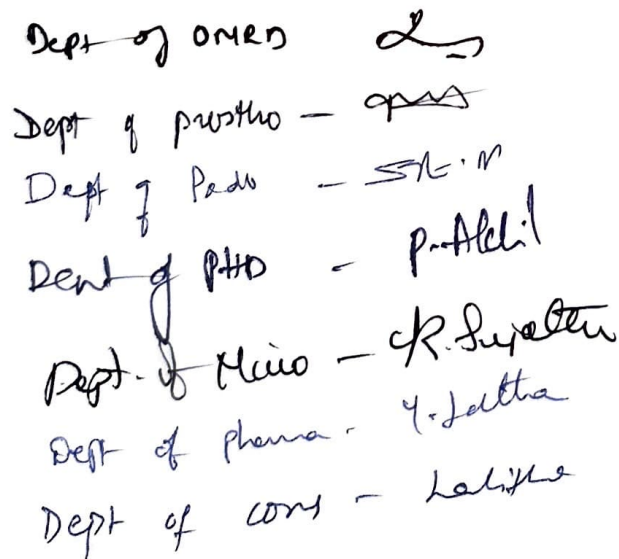 Dept of OMRD
Dept of prostho -
Dept of Pedo -
Dept of PHD - P. Akhil
Dept. of Micro - R. Sujatha
Dept of pharma - Y. Latha
Dept of cons - Lalitha